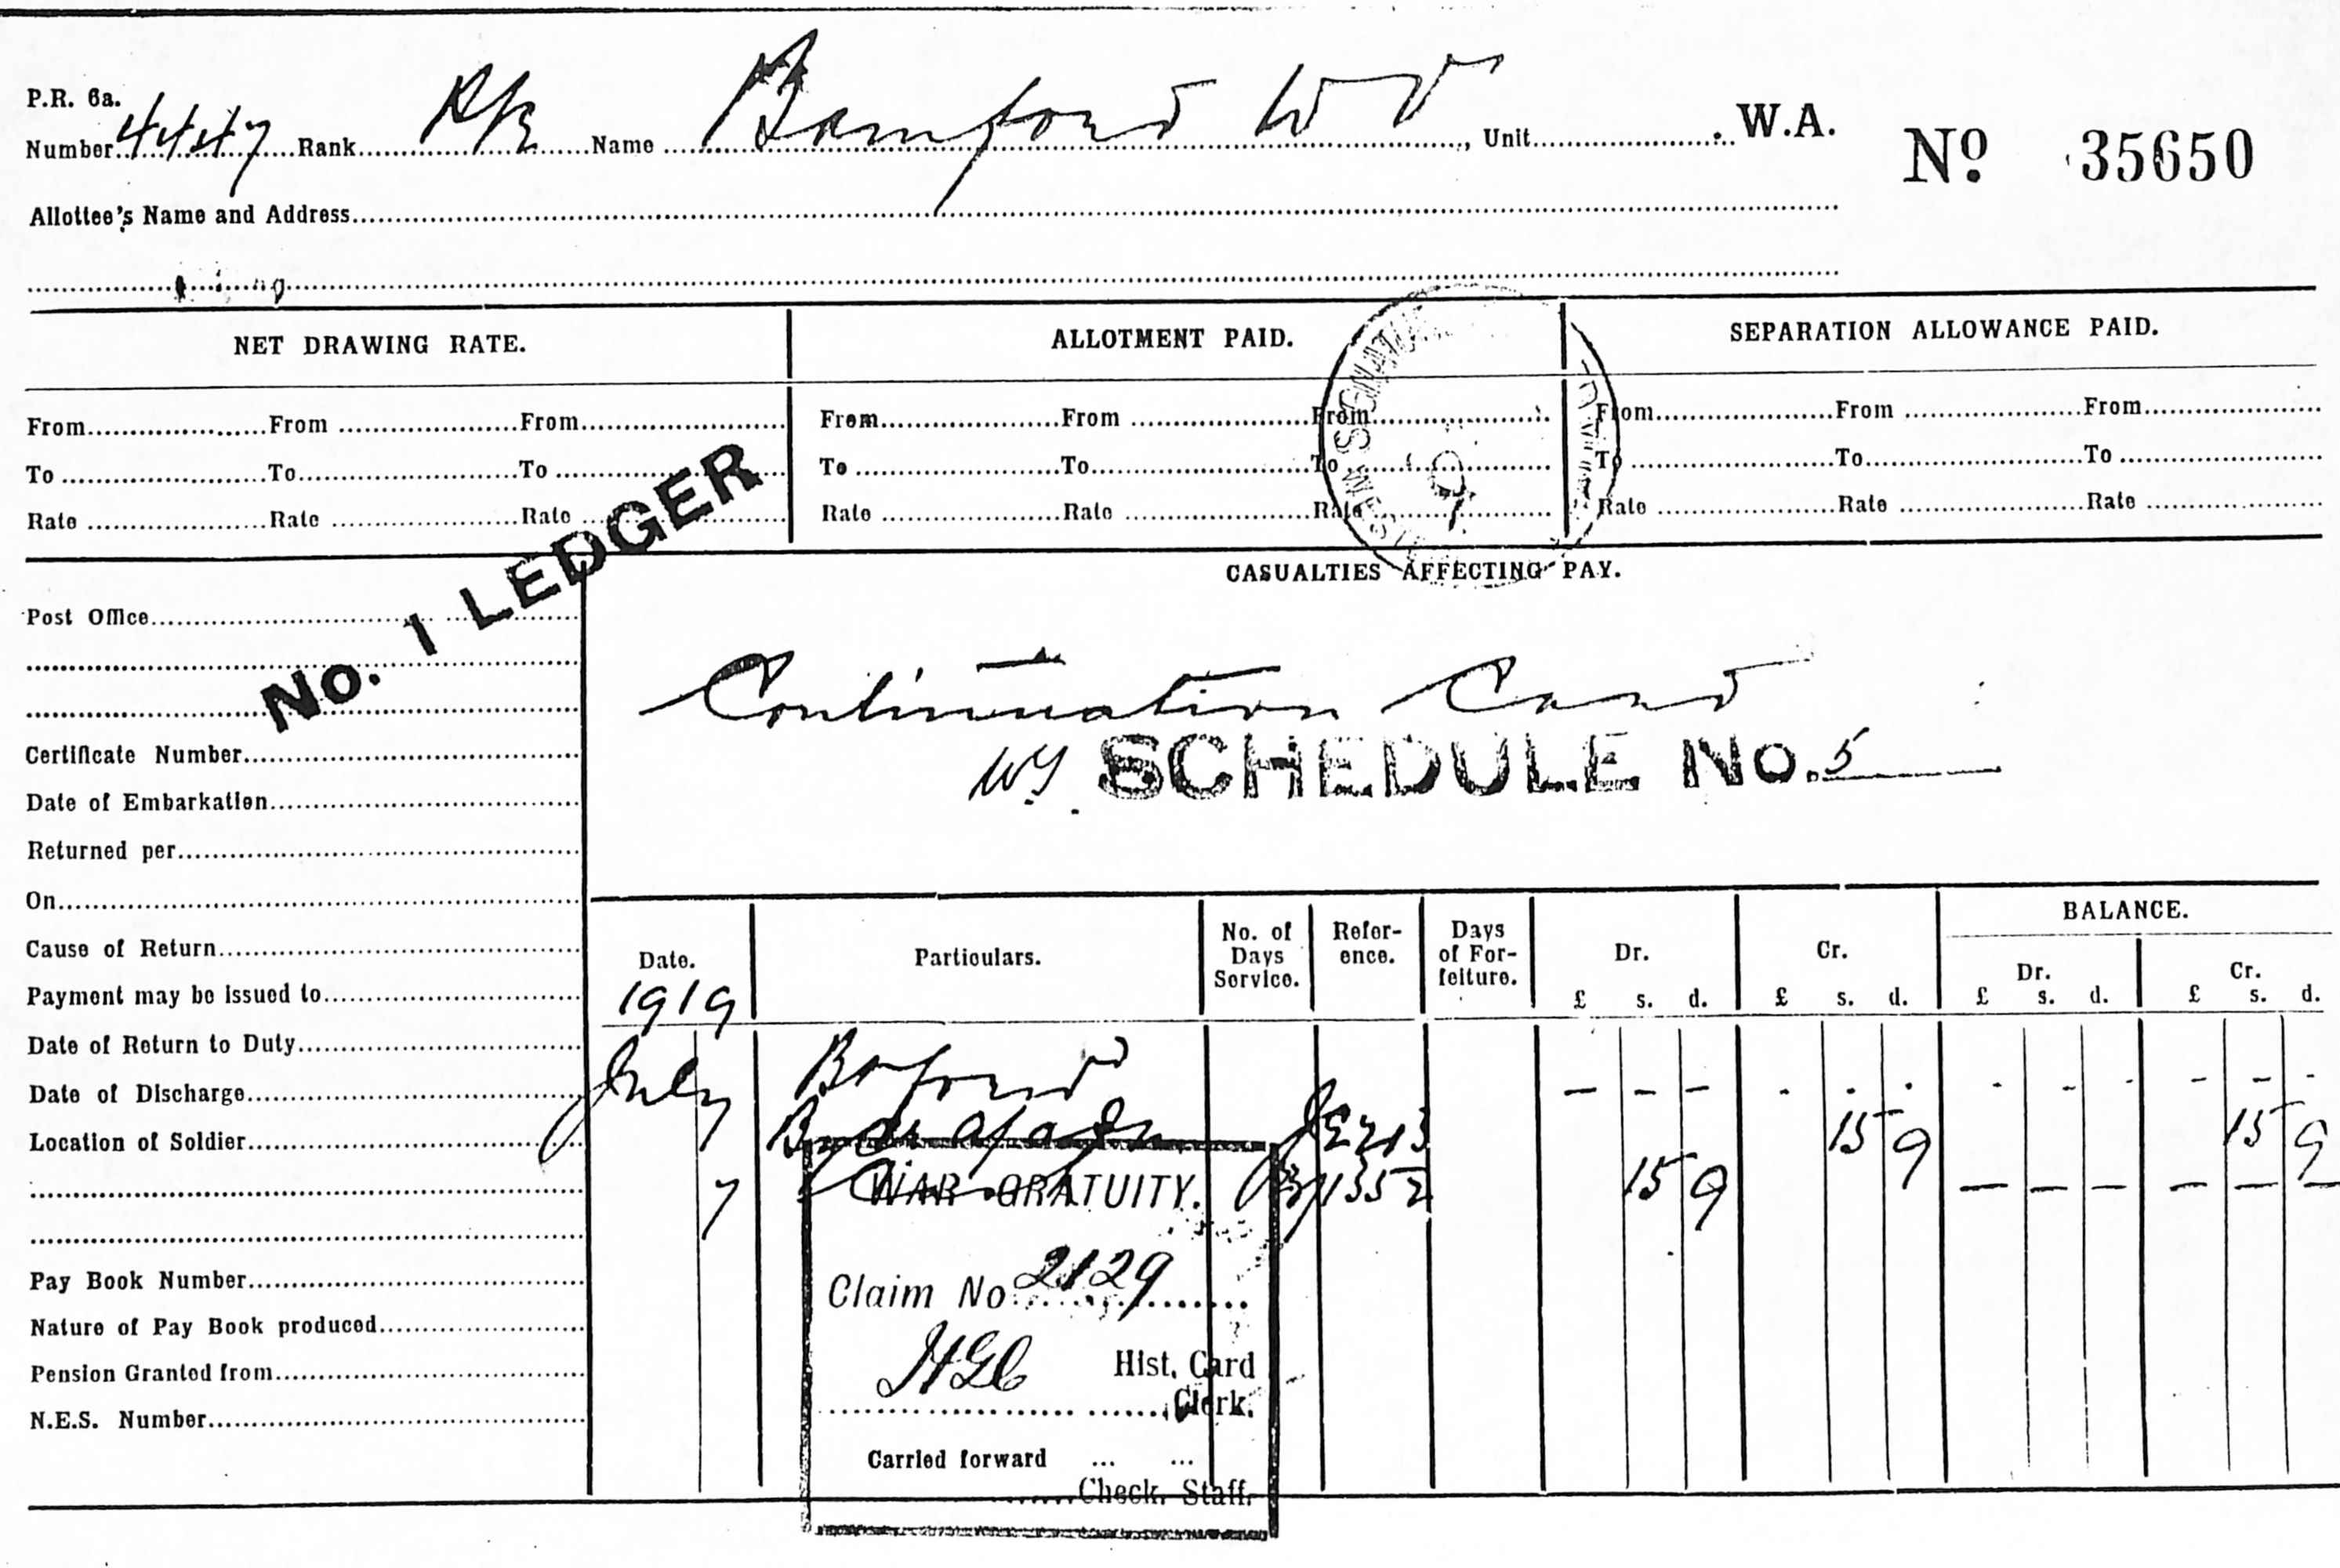 P.R. 6a.
Number 4447 Rank Name Bamford W V, Unit W.A. No 35650
Allottee's Name and Address
NET DRAWING RATE. ALLOTMENT PAID. SEPARATION ALLOWANCE PAID.
From From From From From From From From From
To To To To To To To To To
Rate Rate Rate Rate Rate Rate Rate Rate Rate
No. 1 LEDGER
CASUALTIES AFFECTING PAY.
Post Office
Continuation Card
SCHEDULE No. 5
Certificate Number
Date of Embarkation
Returned per
On
Cause of Return
Payment may be issued to
Date of Return to Duty
Date of Discharge
Location of Soldier
Pay Book Number
Nature of Pay Book produced
Pension Granted from
N.E.S. Number
Date. Particulars. No. of Days Service. Reference. Days of Forfeiture. Dr. Cr. BALANCE.
Dr. Cr.
£ s. d. £ s. d. £ s. d. £ s. d.
1919
July B forward - - - - - - - - - - - -
7 15 9 15 9
7 15 9 - - - - - -
WAR GRATUITY.
Claim No 2129
Hist. Card
Clerk.
Carried forward ... ...
Check. Staff.